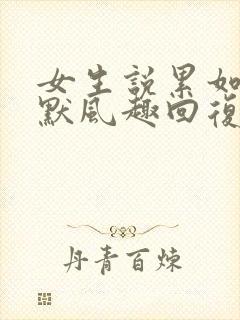 女生說累如
默風趣回復
丹青百煉